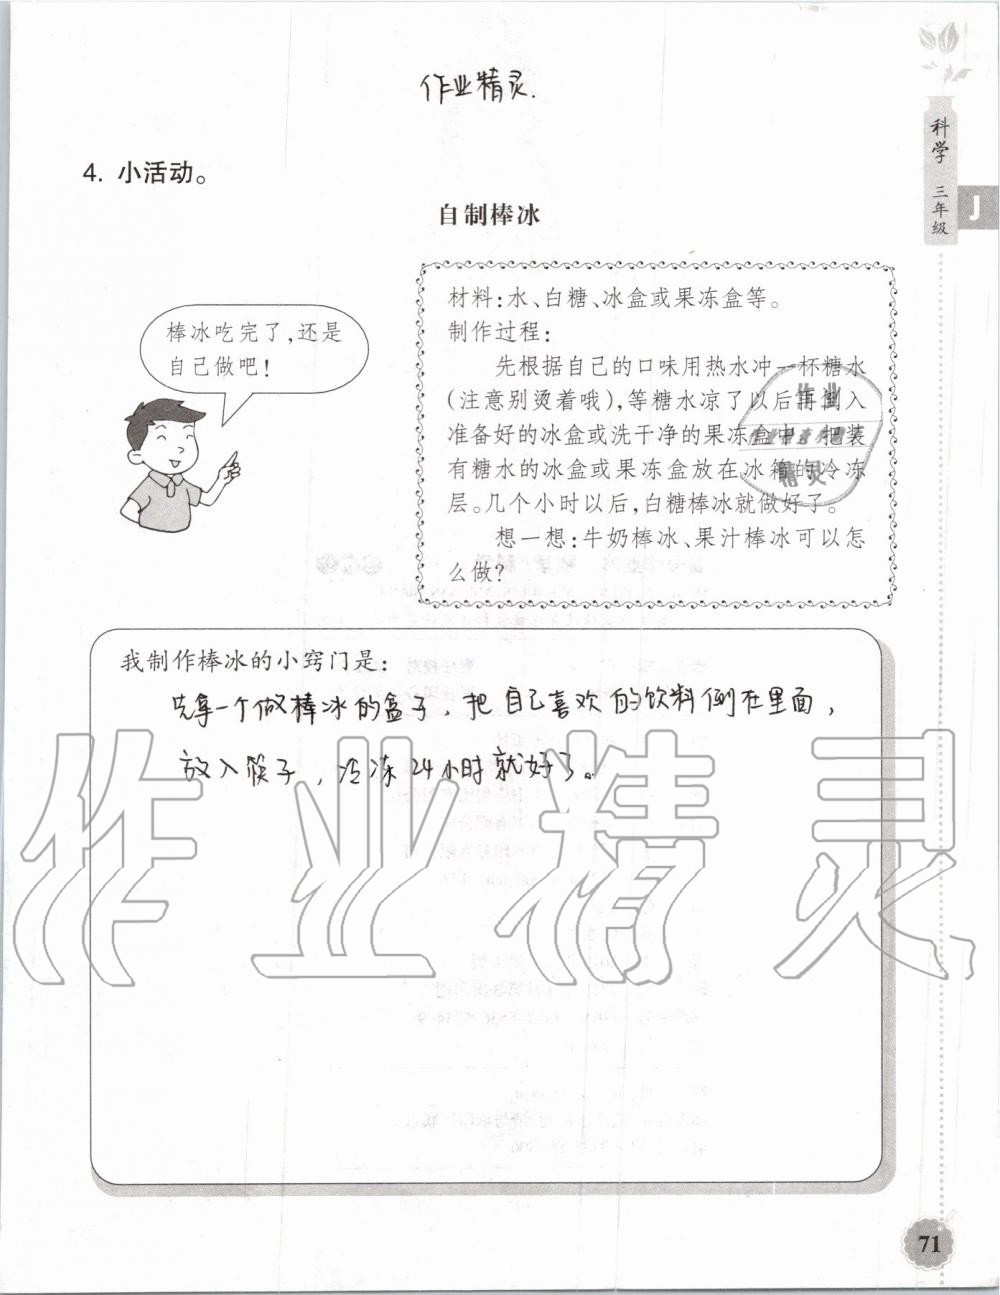 作业精灵.
科学 三年级
J
4. 小活动。
自制棒冰
棒冰吃完了,还是
自己做吧!
材料:水、白糖、冰盒或果冻盒等。
制作过程:
先根据自己的口味用热水冲一杯糖水
(注意别烫着哦),等糖水凉了以后再倒入
准备好的冰盒或洗干净的果冻盒中,把装
有糖水的冰盒或果冻盒放在冰箱的冷冻
层。几个小时以后,白糖棒冰就做好了。
想一想:牛奶棒冰、果汁棒冰可以怎
么做?
作业
精灵
我制作棒冰的小窍门是:
先拿一个做棒冰的盒子,把自己喜欢的饮料倒在里面,
放入筷子,冷冻24小时就好了。
作业精灵
71